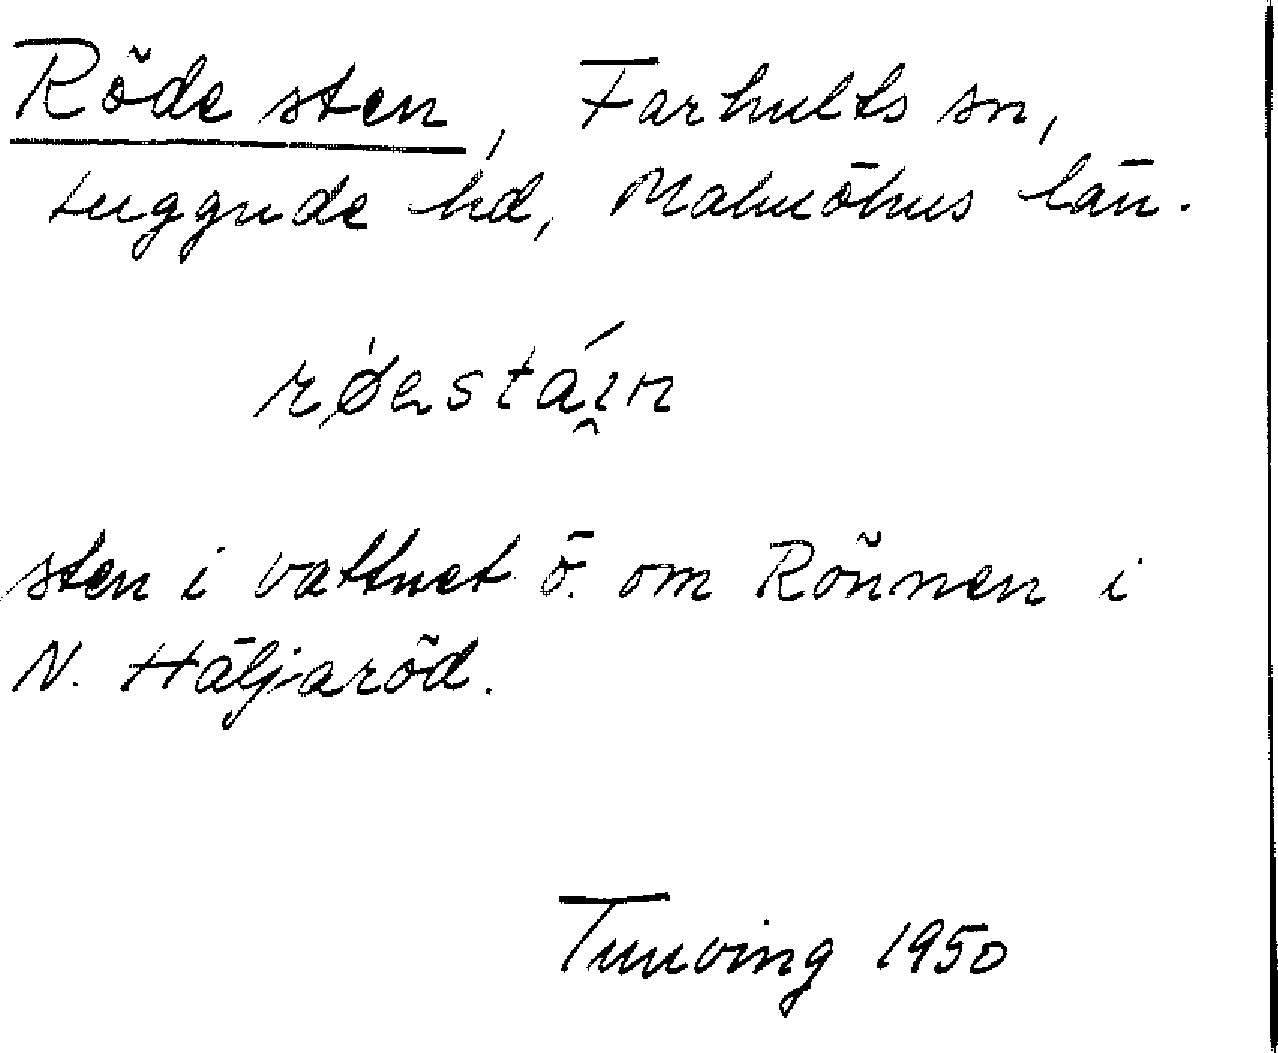 Röde sten, Farhults sn,
Luggude hd, Malmöhus län.
røestái̯n
sten i vattnet ö. om Rönnen i
N. Häljaröd.
Tunving 1950